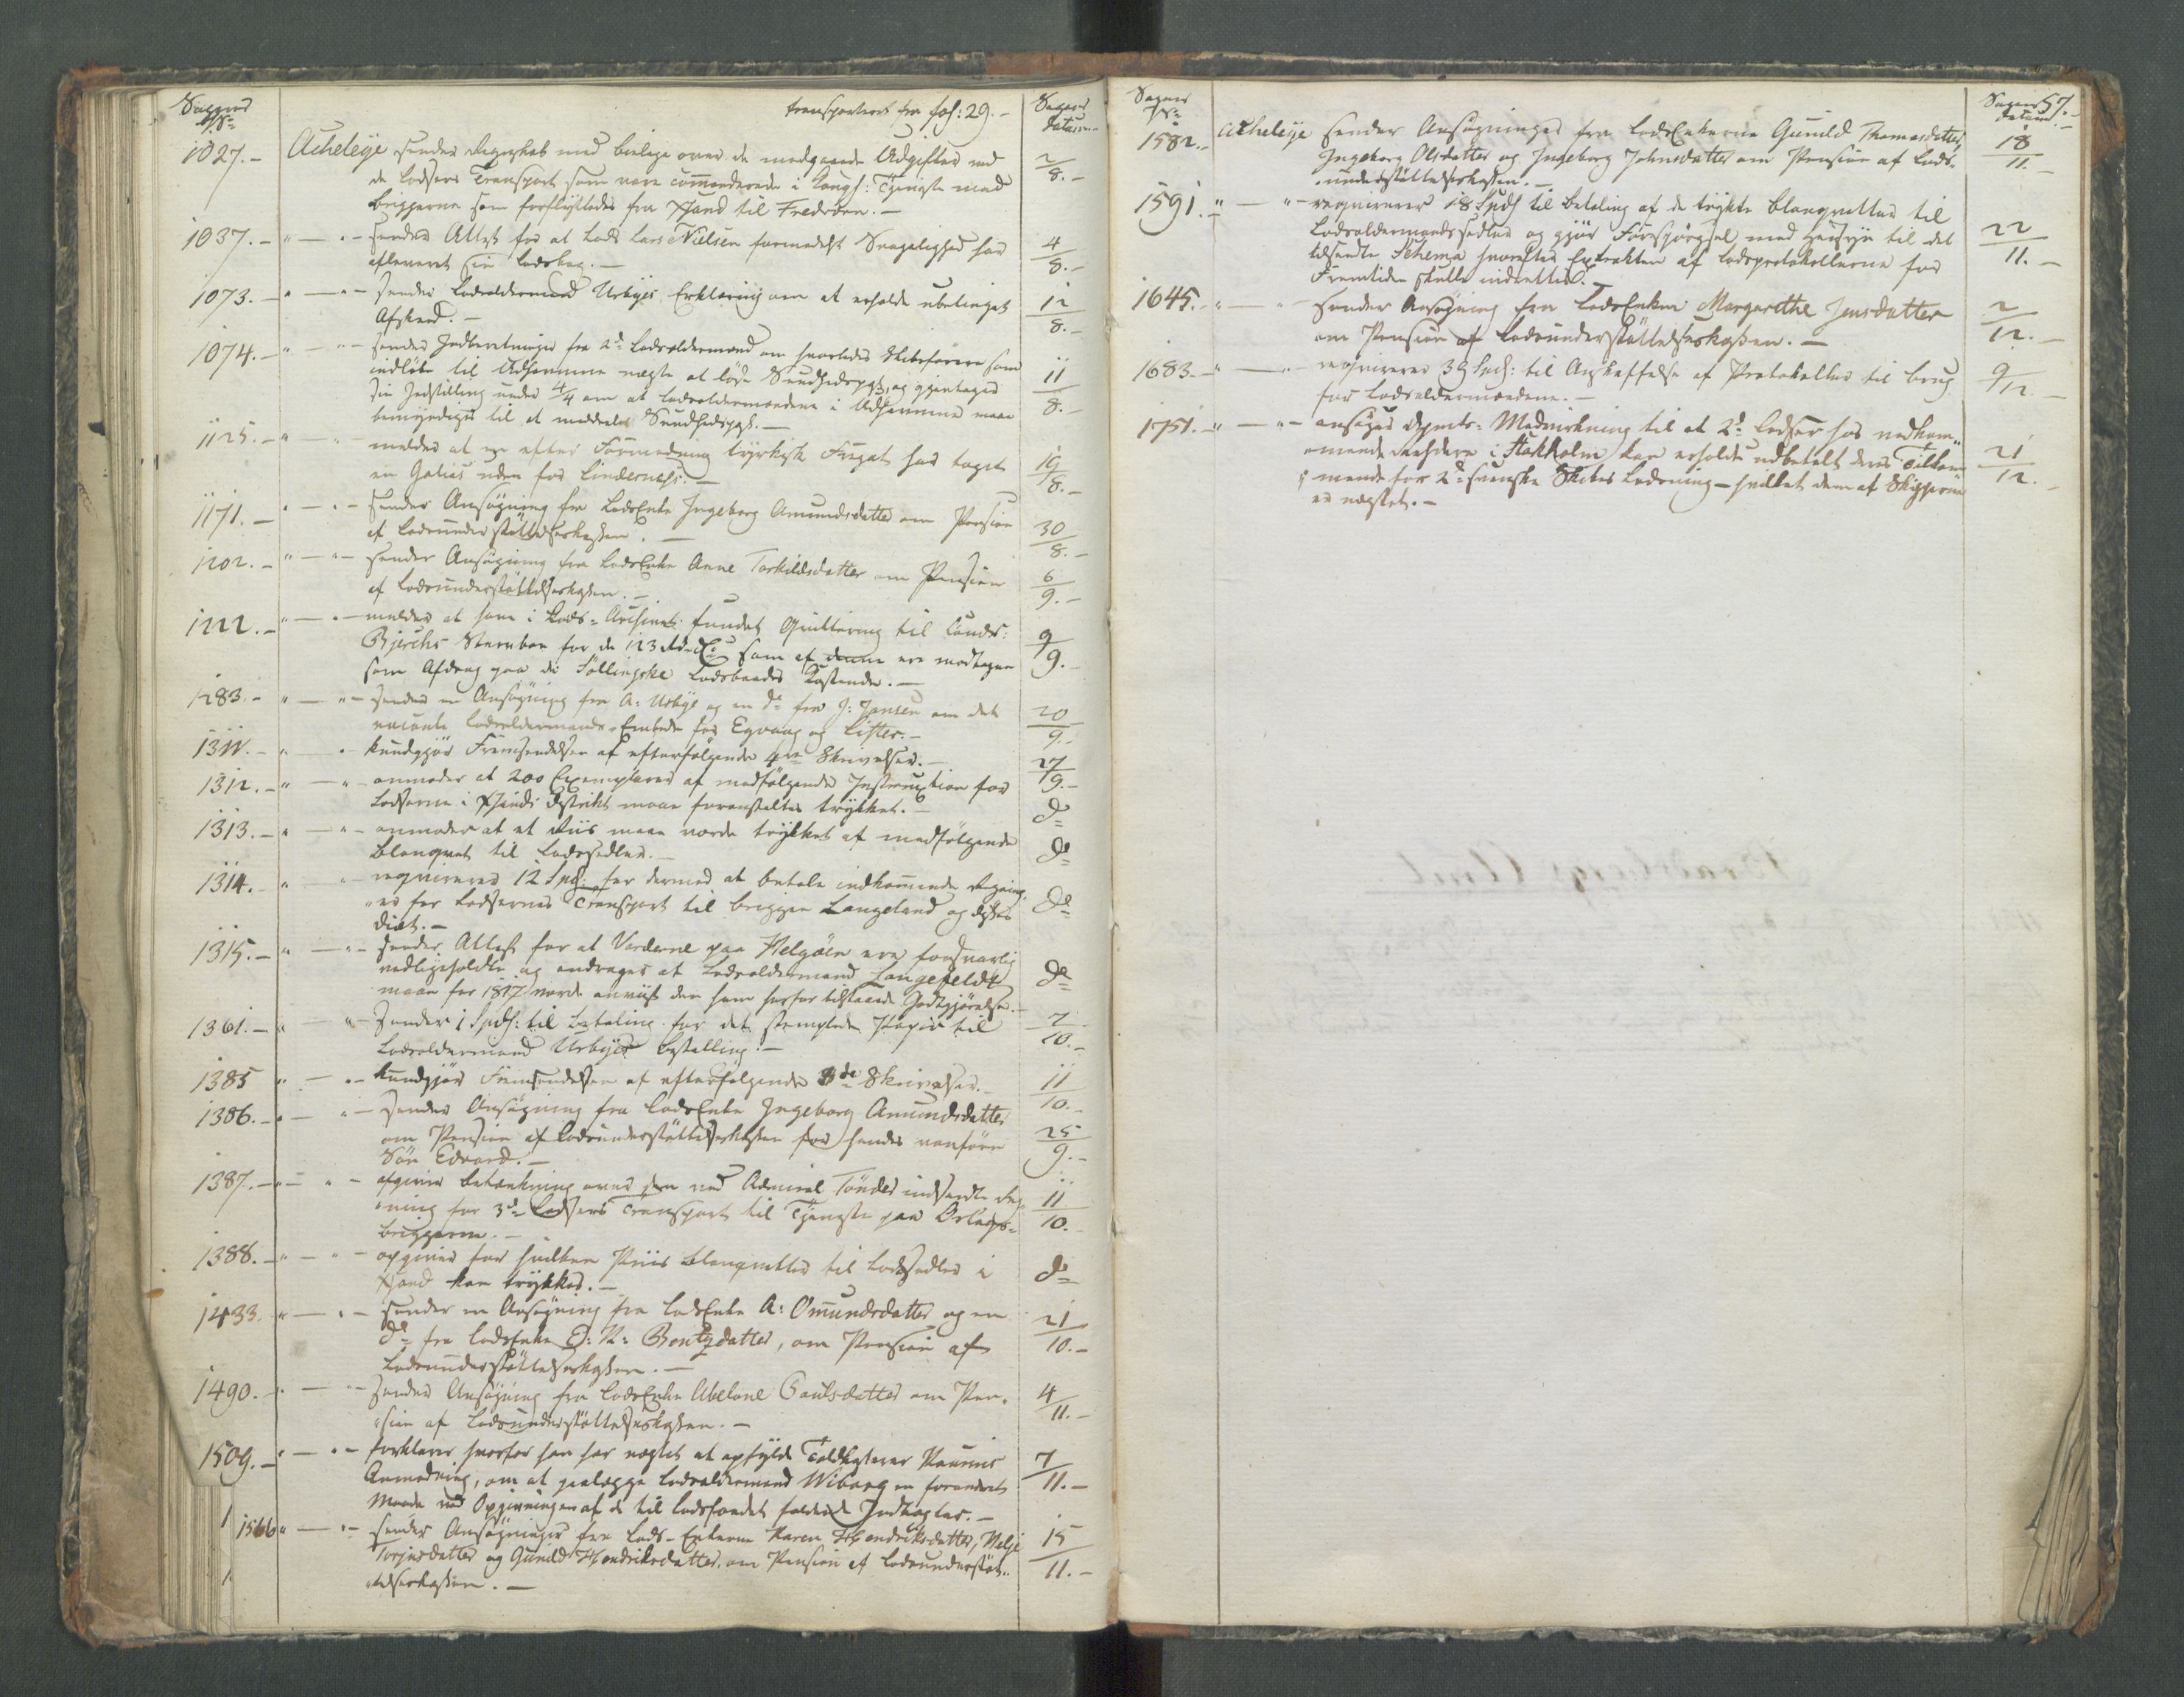 Sagens
No
transporteret fra fol: 29.-
Sagens
datum
1027.- Acheleye sender Regnskab med bielage over de medgaaede Udgifter ved
de Lodsers Transport som vare commanderede i Kongl: Tjeneste med
Briggerne som forflyttedes fra Xsand til Fredsværn.-
2/8.-
1037.- " — " - sender Attest for at Lods Lars Nielsen formedelst Svagelighed har
afleveret sin Lodsbog.-
4/8.-
1073.- " — " - sender Lodsoldermand Urbyes Erklæring om at erholde ubetinget
Afskeed.-
12/8.-
1074.- " — " - sender Indberetninger fra 2de Lodsoldermænd om hvorledes Skibsførere som
indløbe til Udhavnene nægte at løse Sundhedspas, og gjentager
sin Indstilling under 4/4 om at Lodsoldermændene i Udhavnene maae
bemyndiges til at meddele Sundhedspas.-
11/8.-
1125.- " — " - melder at en efter Formodning tyrkisk Fregat har taget
en Galias uden for Lindernæs.-
19/8.-
1171.- " — " - sender Ansøgning fra LodsEnke Ingeborg Amundsdatter om Pension
af Lodsunderstøttelseskassen.-
30/8.-
1202.- " — " - sender Ansøgning fra LodsEnke Anne Torkildsdatter om Pension
af Lodsunderstøttelseskassen.-
6/9.-
1222.- " — " - melder at have i Lods-Archivet fundet Quittering til Lands:
Bjerchs Sterbboe for de 123 Rd som af denne ere modtagne
som Afdrag paa de Søllingske Lodsbaades Kostende.-
9/9.-
1283.- " — " - sender en Ansøgning fra A: Urbye og en do fra J: Jensen om det
vacante Lodsoldermands-Embede for Egvaag og Lister.-
20/9.-
1311.- " — " kundgjør Fremsendelsen af efterfølgende 4re Skrivelser.-
27/9.-
1312.- " — " - anmoder at 200 Exemplarer af medfølgende Instruction for
Lodserne i Xsands District maae foranstaltes trykket.-
do
1313.- " — " - anmoder at et Riis maae vorde trykket af medfølgende
Blanquet til Lodssedler.-
do
1314.- " — " - reqvirerer 12 Spd: for dermed at betale indkommende Regning
er for Lodsernes Transport til Briggen Langeland og disses
Diæt.-
do
1315.- " — " - sender Attest for at Varderne paa Helgøen ere forsvarlig
vedligeholdte og andrager at Lodsoldermand Langefeldt
maae for 1817 vorde anviist den ham herfor tilstaaede Godtgjørelse.-
do
1361.- " — " - Sender 1 Spd: til Betaling for det stemplede Papir til
Lodsoldermand Urbyes Bestalling.-
7/10.-
1385 " — " - kundgjør Fremsendelsen af efterfølgende 3de Skrivelser.
11/10.-
1386.- " — " - Sender Ansøgning fra LodsEnke Ingeborg Amundsdatter
om Pension af Lodsunderstøttelseskassen for hendes vanføre
Søn Edvard.-
25/9.-
1387.- " — " - afgiver Betænkning over den ved Admiral Tønder indsendte Reg-
ning for 3de Lodsers Transport til Tjeneste paa Orlogs-
briggerne.-
11/10.-
1388.- " — " - opgiver for hvilken Priis Blanquetter til Lodssedler i
Xsand kan trykkes.-
do
1433. " — " - sender en Ansøgning fra LodsEnke A: Omundsdatter og en
do fra LodsEnke E: N: Bentzdatter, om Pension af
Lodsunderstøttelseskassen.-
21/10.-
1490.- " — " - sender Ansøgning fra LodsEnke Abelone Paulsdatter om Pen-
sion af Lodsunderstøttelseskassen.-
4/11.-
1509.- " — " - forklarer hvorfor han har nægtet at opfylde Toldkasserer
Anmodning, om at paalægge Lodsoldermand Wiborg en forandret
Maade ved Opgivningen af de til Lodsfondet faldende Indtægter.-
7/11.-
1566 " — " - sender Ansøgninger fra Lods-Enkerne Karen Hendriksdatter, Melje
Torjusdatter og Gunild Hendriksdatter, om Pension af Lodsunderstøt-
telseskassen.-
15/11.-
Sagens
No
Sagens 57.-
datum
1582.- Acheleye sender Ansøgninger fra LodsEnkerne Gunild Thomasdatter,
Ingeborg Olsdatter og Ingeborg Johnsdatter om Pension af Lods-
understøttelseskassen.-
18/11.-
1591.- " — " - reqvirerer 18 Spd: til Betaling af de trykte Blanquetter til
Lodsoldermandssedler og gjør Forespørgsel med Hensyn til det
tilsendte Schema hvorefter Extrakten af Lodsprotokollerne for
Fremtiden skulle indrettes.-
22/11.-
1645.- " — " - sender Ansøgning fra LodsEnken Margarethe Jensdatter
om Pension af Lodsunderstøttelseskassen.-
2/12.-
1683.- " — " - reqvirerer 39 Spd: til Anskaffelse af Protokoller til Brug
for Lodsoldermændene.-
9/12.-
1751.- " — " - ansøger Depmts-Medvirkning til at 2de Lodser hos vedkom-
mende Rehdere i Stokholm kan erholde udbetalt deres Tilkom
mende for 2de svenske Skibes Lodsning - hvilket dem af Skipperne
er nægtet.-
21/12.-